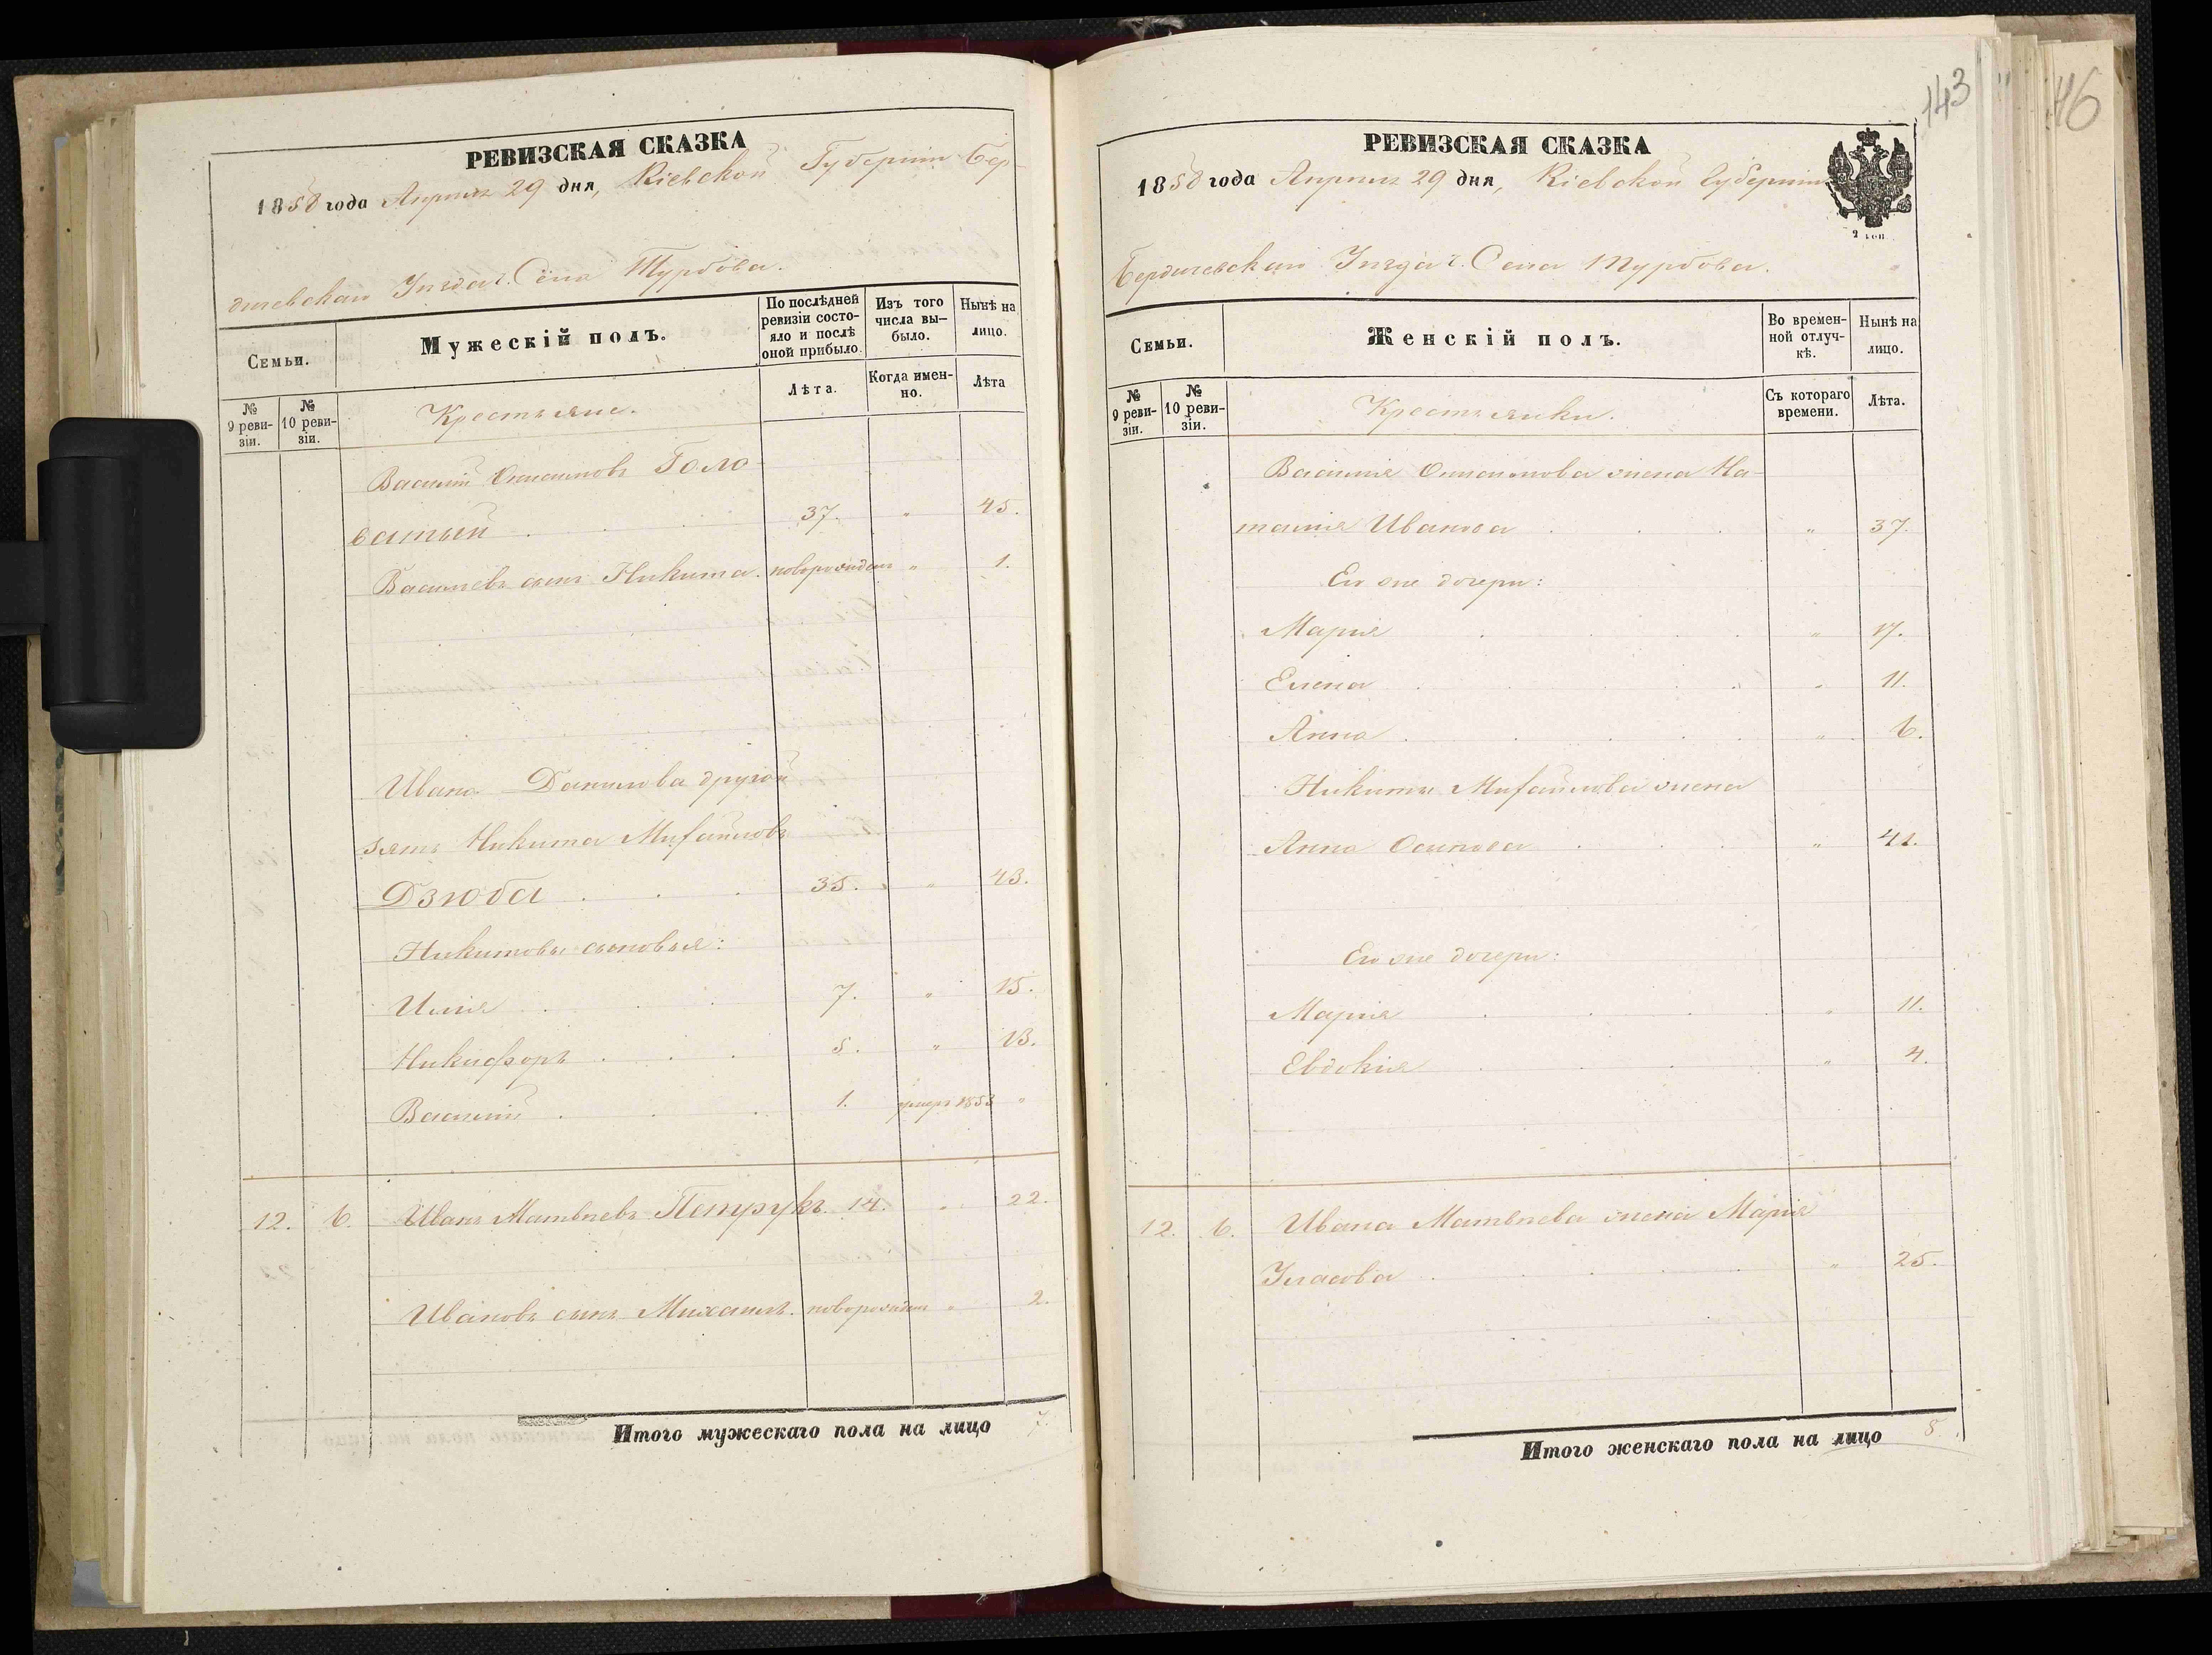 РЕВИЗСКАЯ СКАЗКА
1858 года Апрѣля 29 дня, Кіевской Губерніи Бер-
дичевскаго Уѣзда Села Турбова.
Семьи.
Мужескій полъ.
По послѣдней ревизіи состо-яло и послѣ оной прибыло.
Изъ того числа вы-было.
Нынѣ на лицо.
№ 9 реви-зіи.
№ 10 реви-зіи.
Крестьяне.
Лѣта.
Когда имен-но.
Лѣта
Василій Голо-
ватый 37. " 45.
Васильевъ сынъ Никита. новорожден " 1.
Ивана Данилова другой
зять Никита Михайловъ
Дзюба 35. " 43.
Никитовы сыновья:
Илія 7. " 15.
Никифоръ 5. " 13.
Василій 1. умеръ 1853 "
12. 6. Иванъ Матвѣевъ Петрукъ 14. " 22.
Ивановъ сынъ Михаилъ. новорожден " 2.
Итого мужескаго пола на лицо 7.
143
46
РЕВИЗСКАЯ СКАЗКА
1858 года Апрѣля 29 дня, Кіевской Губерніи
2 коп
Бердичевскаго Уѣзда Села Турбова.
Семьи.
Женскій полъ.
Во времен-ной отлуч-кѣ.
Нынѣ на лицо.
№ 9 реви-зіи.
№ 10 реви-зіи.
Крестьянки.
Съ котораго времени.
Лѣта.
Василія жена На-
талія Иванова " 37.
Его же дочери:
Марія " 17.
Елена " 11.
Анна " 6.
Никиты Михайлова жена
Анна Осипова " 42.
Его же дочери:
Марія " 11.
Евдокія " 4.
12. 6. Ивана Матвѣева жена Марія
Уласова " 25.
Итого женскаго пола на лицо 8.